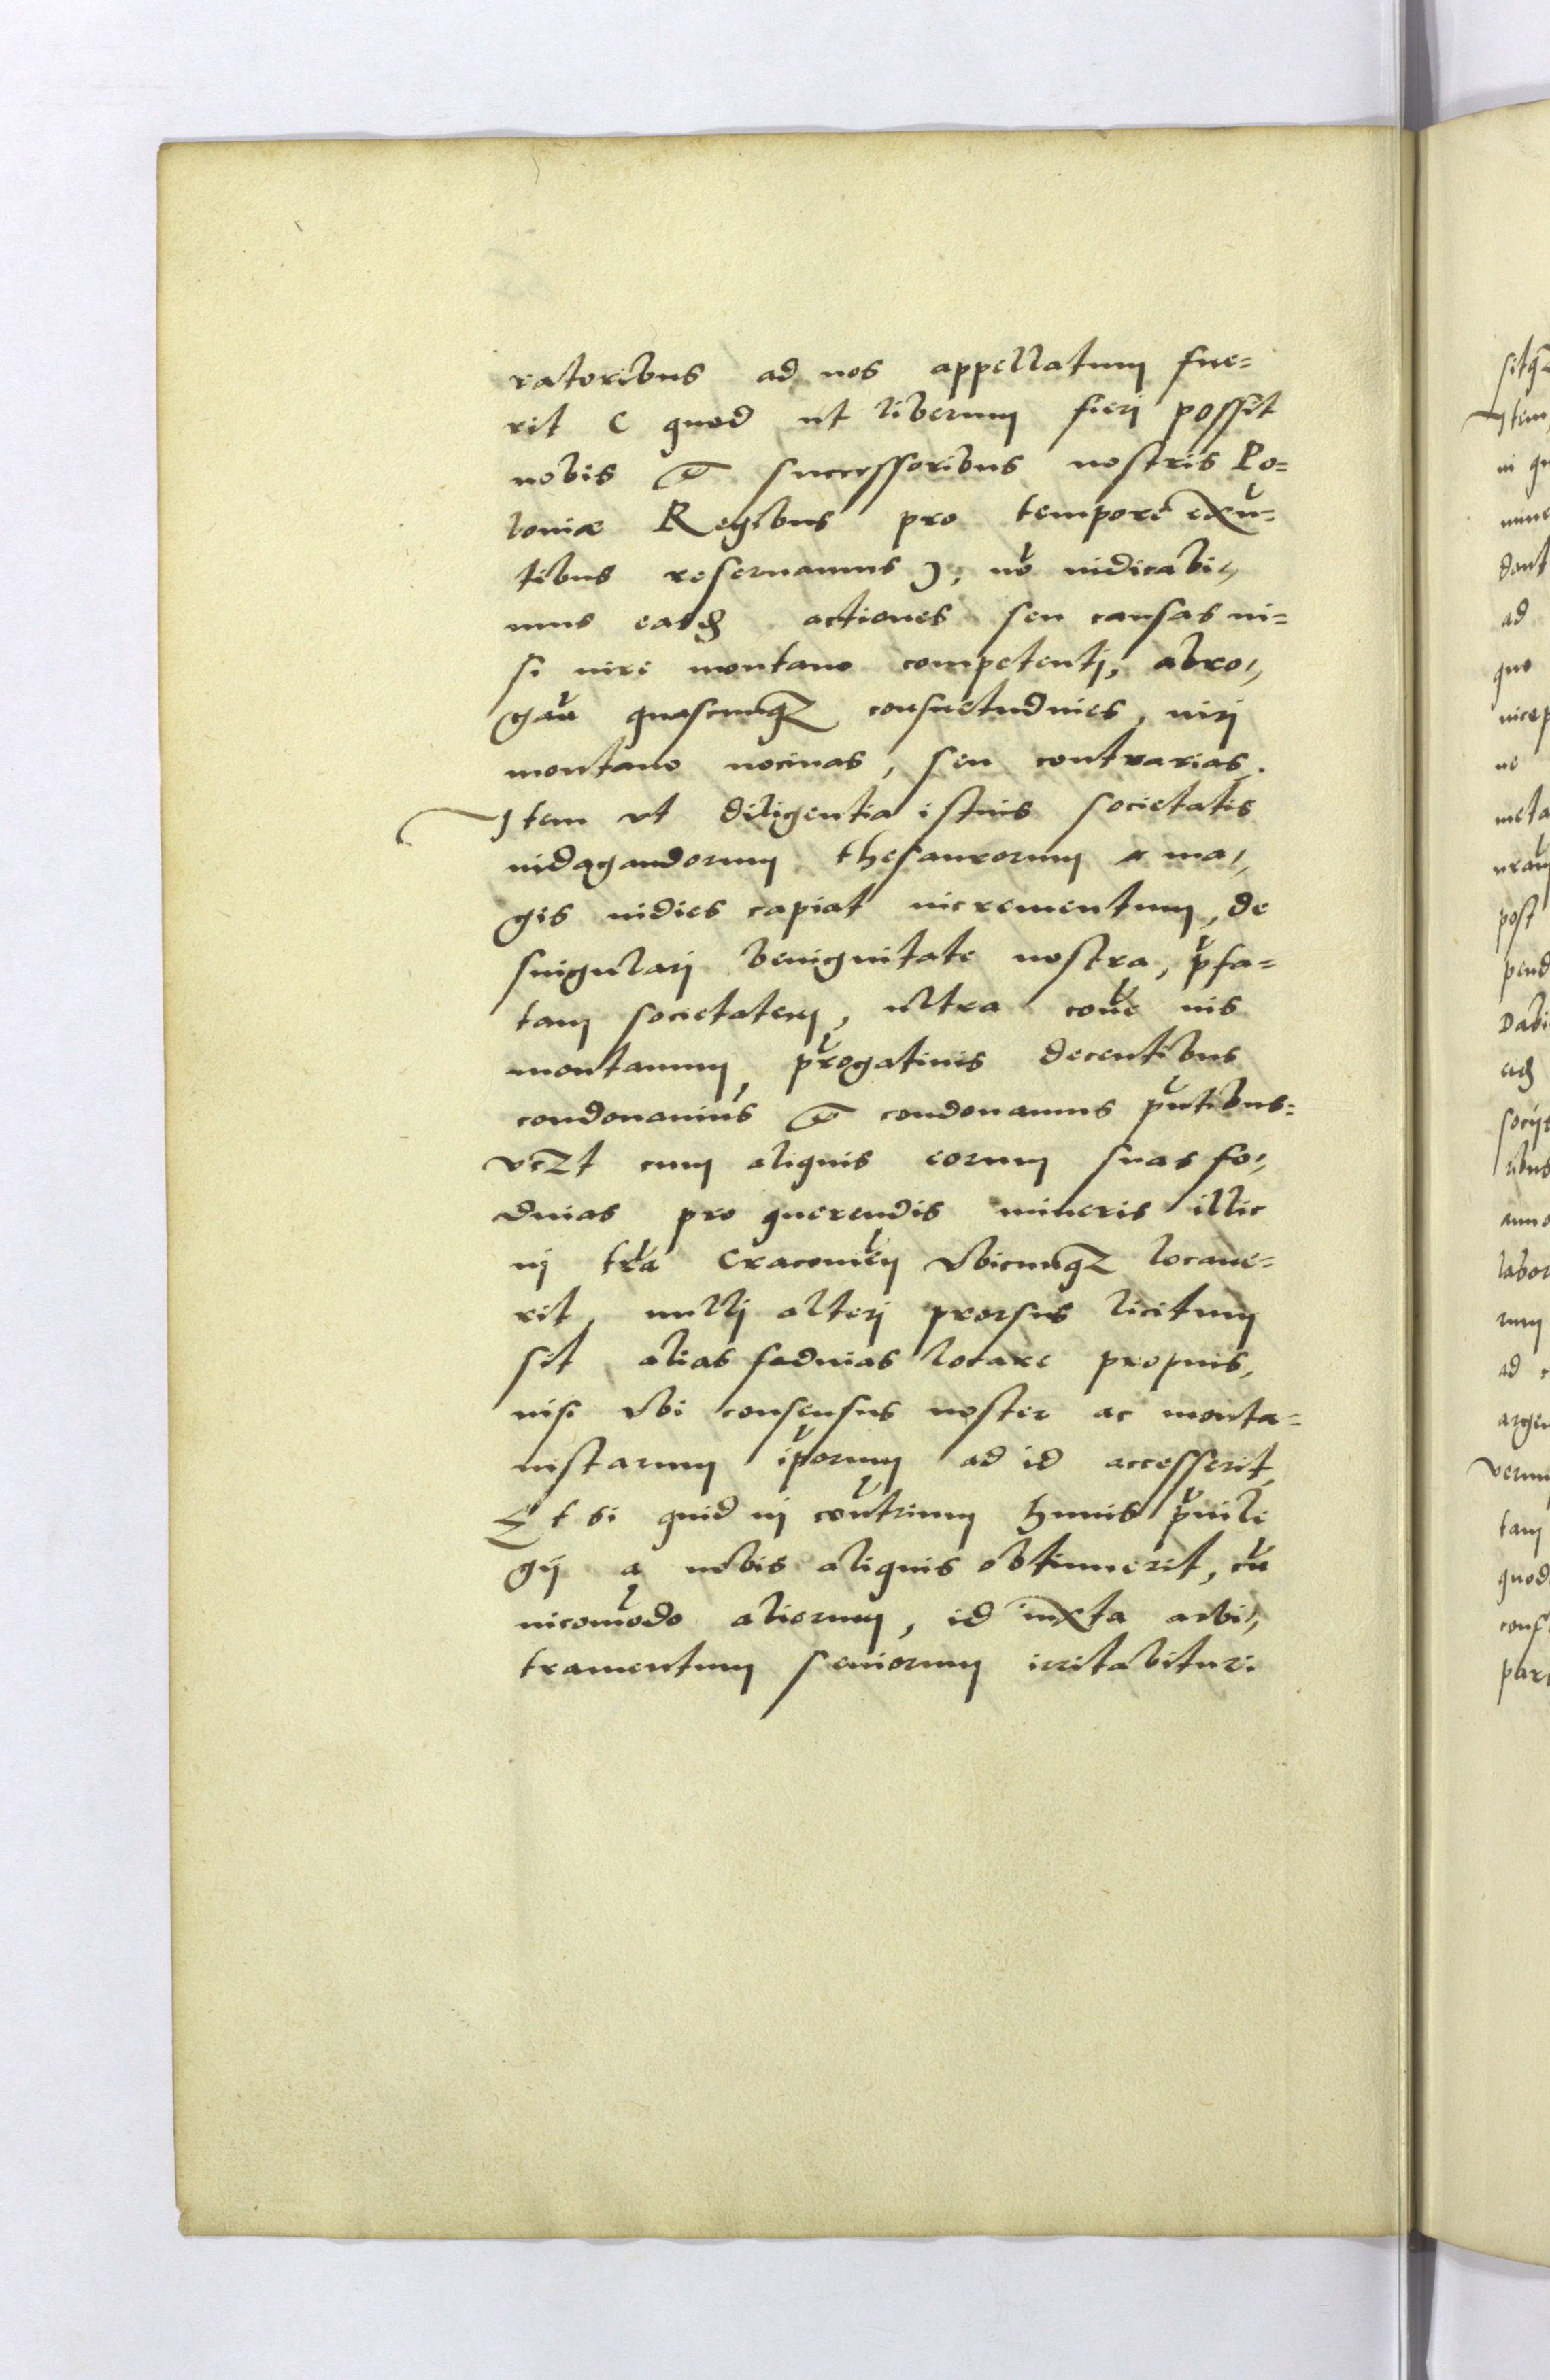 ratoribus ad nos appellatum fue=
rit ( quod ut liberum fieri possit
nobis et successoribus nostris Po=
loniæ Regibus pro tempore exñ=
tibus reseruamus ), nõ iudicabi=
mus easd actiones seu causas ni=
si iure montano competenti, abro=
gañ quascunqz consuetudines, iuri
montano nociuas, seu contrarias.
Item vt diligentia istius societatis
indagandorum thesaurorum a ma=
gis indies capiat incrementum, de
singulari benignitate nostra, p̃fa=
tam societatem, ultra cõne ius
montanum, p̃rogatiuis decentibus
condonauimus et condonamus p̃ntibus=
vczt cum aliquis eorum suas fo=
dinas pro querendis mineris illic
in tr̃a Cracouieñ vbicunqz locaue=
rit, nulli alteri prorsus licitum
sit alias fodinas locare propius,
nisi vbi consensus noster ac monta=
nistarum ip̃orum ad id accesserit,
Et si quid in cont̃rium huius p̃uile
gij a nobis aliquis obtinuerit, cũ
incom̃odo aliorum, id iuxta arbi=
tramentum seniorum irritabitur:
sitq
Item
in qu
mine
dant
ad
quo
meta
post
pend
Dabi
socijs
ribus
anno
labor
rum
ad
argen
verum
tam
quod
conf